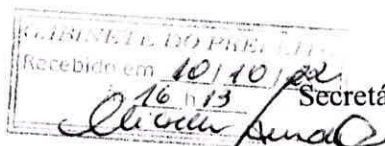 GABINETE DO PREFEITO
Recebido em 10/10/22
16 h 13
Secretá